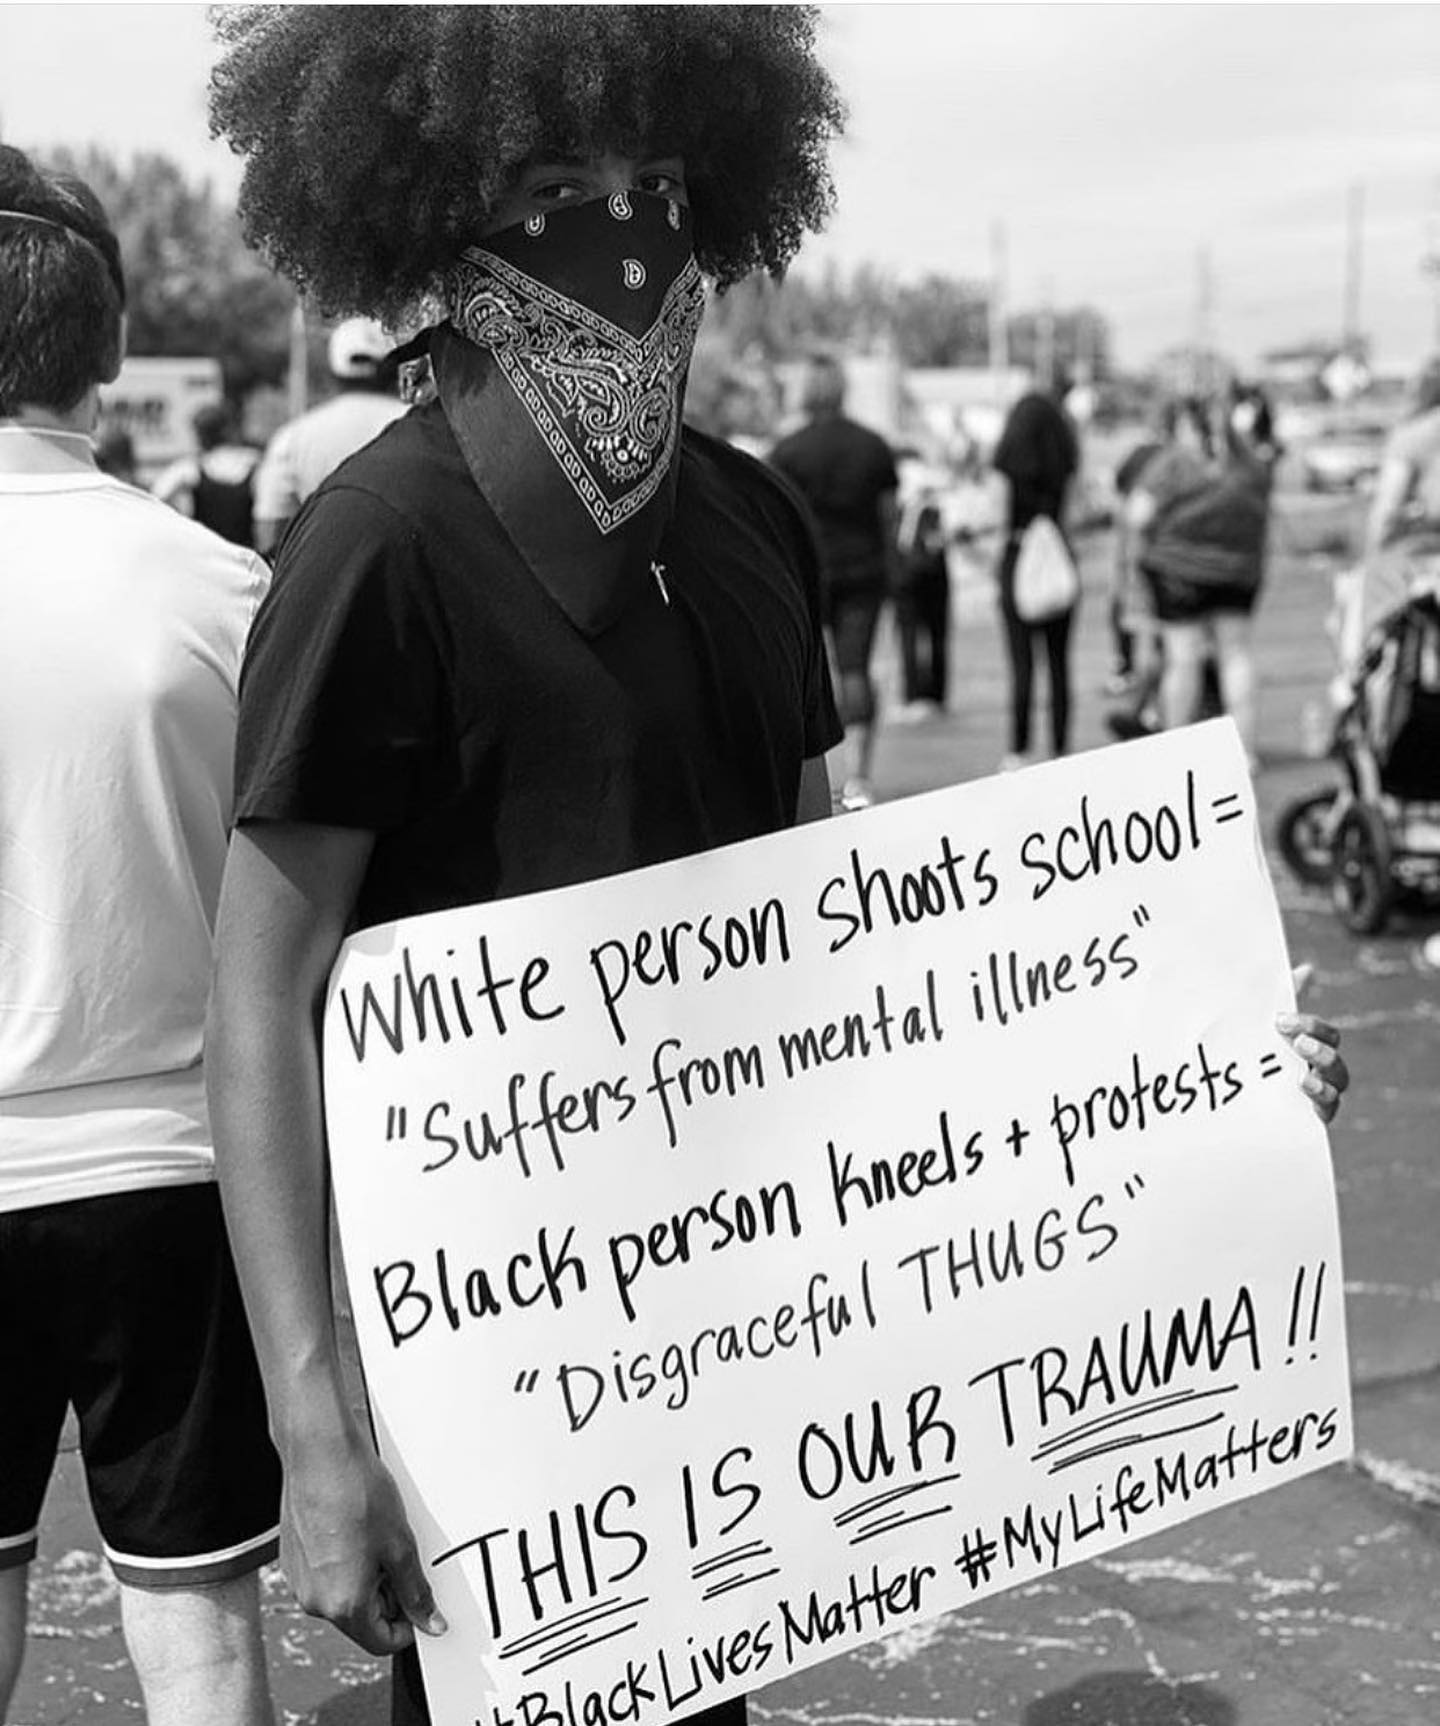 White person shoots school =
"Suffers from mental illness"
Black person kneels + protests =
"Disgraceful THUGS"
THIS IS OUR TRAUMA!!
#BlackLivesMatter #MyLifeMatters